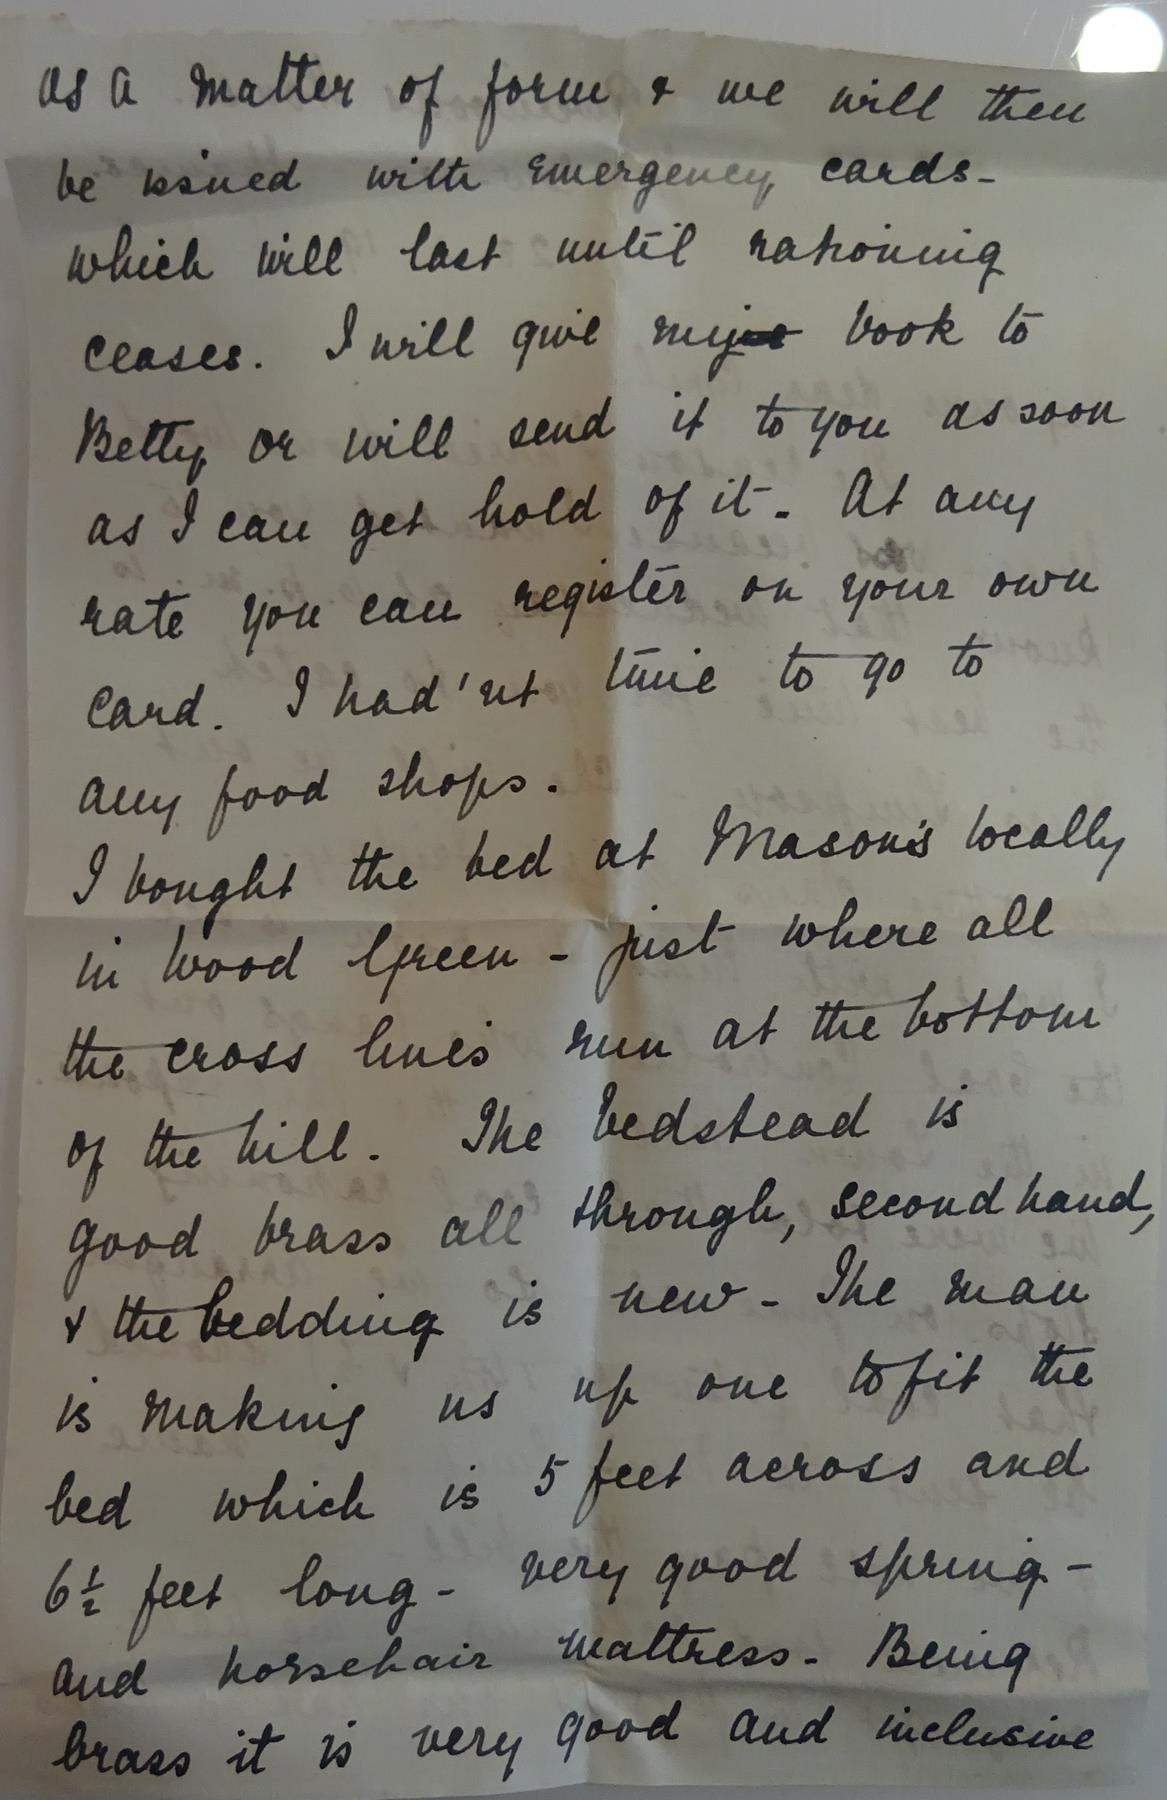 as a matter of form & we will then
be issued with emergency cards -
which will last until rationing
ceases. I will give my book to
Betty or will send it to you as soon
as I can get hold of it - At any
rate you can register on your own
card. I had'nt time to go to
any food shops.
I bought the bed at Mason's locally
in Wood Green - just where all
the cross lines run at the bottom
of the hill. The bedstead is
good brass all through, second hand,
& the bedding is new - The man
is making us up one to fit the
bed which is 5 feet across and
6½ feet long - very good spring -
and horsehair mattress - Being
brass it is very good and inclusive